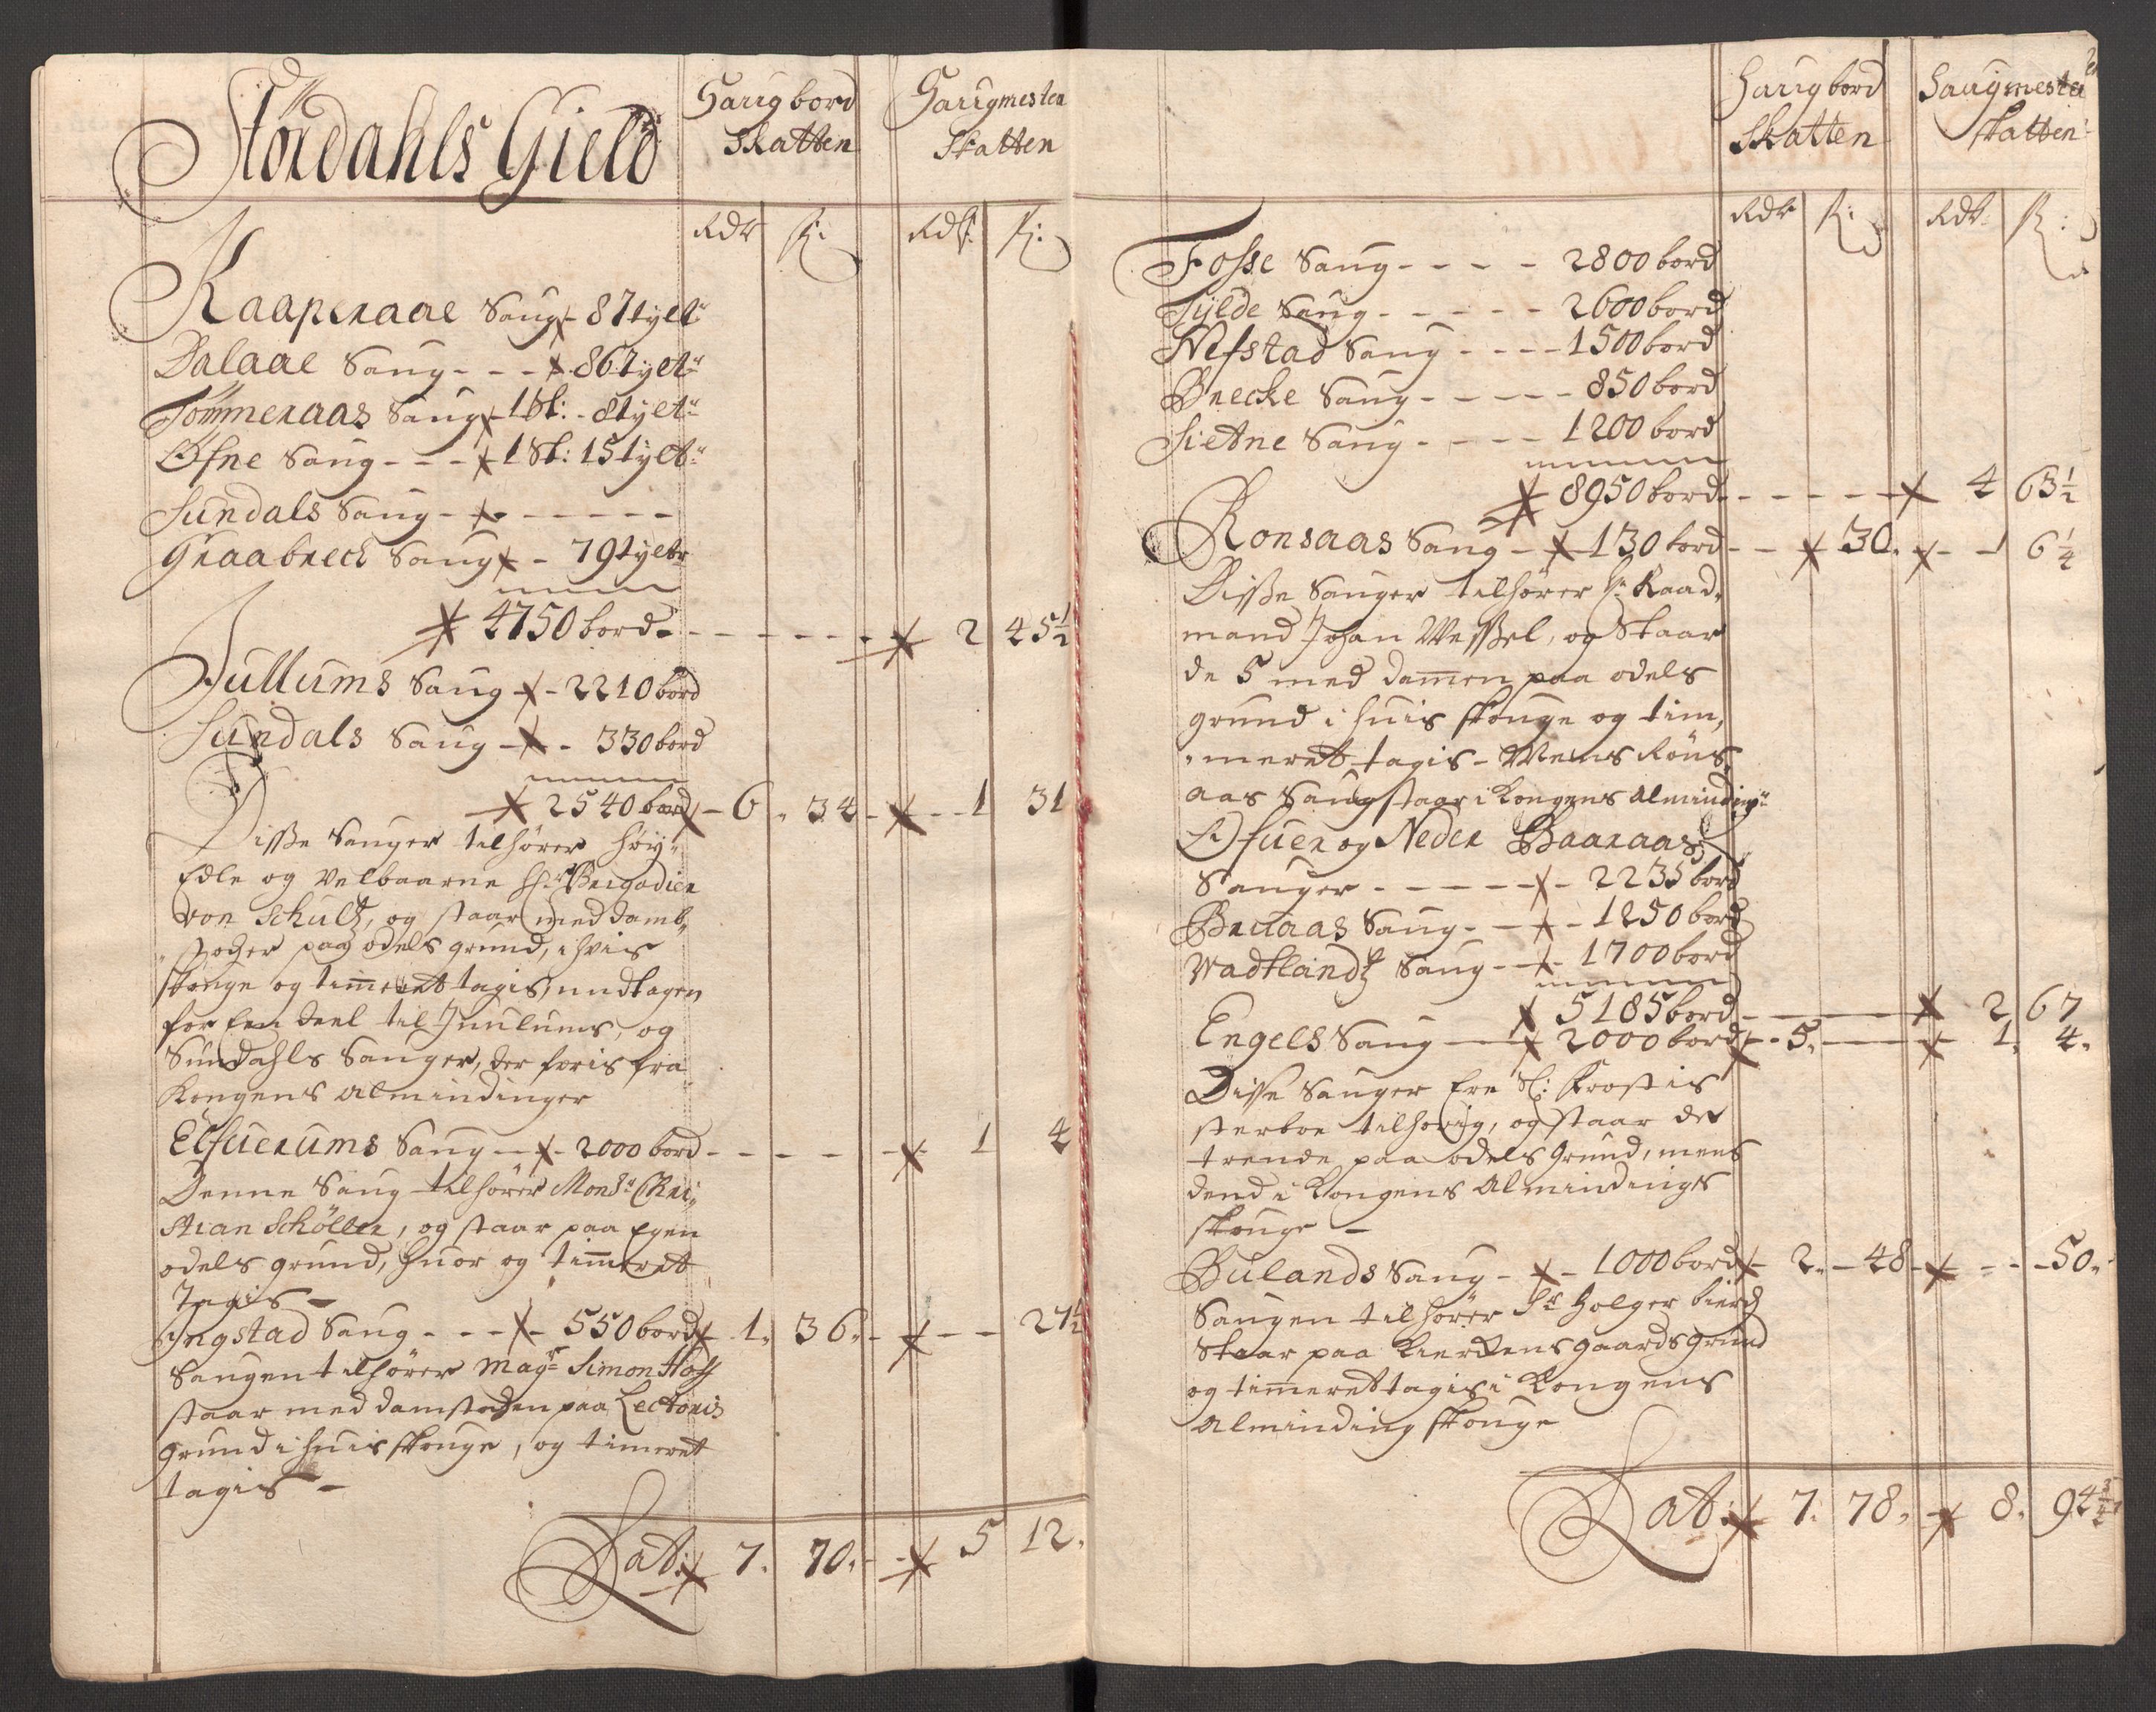 Størdahls Gield
Saugbord Skatten
Saugmester Skatten
Rdr ſk: Rdr ſk:
Kaaperaae Saug - 87 tyltr
Dalaae Saug - - - 86 tyltr
Tømmeraas Saug - 1 St: - 8 tyltr
Øfne Saug - - - 1 St: 15 tyltr
Sundals Saug - - - - - -
Graabreck Saug - 79 tyltr
4750 bord - - - - - - 2 45½
Jullums Saug - 2210 bord
Sundals Saug - - 330 bord
2540 bord - 6. 34 - - - 1 31
Disse Sauger tilhører Høy"
Edle og Velbaarne Hr Brigadier
von Schultz, og staar med damb"
stocher paa odels grund, i hvis
skouge og timmeret tagis, undtagen
for een deel til Juulums, og
Sundahls Sauger, der føris fra
Kongens Almindinger
Elfuerums Saug - - 2000 bord - - - - - 1 4
Denne Saug tilhører Monsr Chri"
stian Schøller, og staar paa Egen
odels grund, huor og timmeret
Tagis -
Ingstad Saug - - - 550 bord - 1. 36. - - - 27½
Saugen tilhører Magr Simon Hoff
staar med damstaden paa Lectoris
Grund i huis skouge, og timeret
tagis -
Lat: 7. 70. - 5 12.
Saugbord Skatten
Saugmester skatten
Rdr ſk: Rdr ſk:
Fosse Saug - - - - 2800 bord
Sylde Saug - - - - - 2600 bord
Nefstad Saug - - - - 1500 bord
Brecke Saug - - - - - 850 bord
Sietne Saug - - - - 1200 bord
8950 bord - - - - - 4 63½
Ronsaas Saug - 130 bord - - 30. - - 1 6¼
Disse Sauger tilhører Hr Raad"
mand Johan Wessel, og Staar
de 5 med dammen paa odels
grund i huis skouge og tim"
"meret tagis - Mens Røns"
aas Saug staar i Kongens Alminding"
Ofuer og Neder Baaraas
Sauger - - - - - - 2235 bord
Breiaas Saug - - - 1250 bord
Wadtlandtz Saug - - 1700 bord
5185 bord - - - - 2 67
Engels Saug - - 2000 bord - - 5. - - - 1. 4.
Disse Sauger Ere Sl: Krostis
sterboe tilhørig, og staar de
trende paa odels Grund, mens
dend i Kongens Almindings
skouge -
Bulands Saug - - 1000 bord - 2. - 48 - - - 50.
Saugen tilhører Sr Holger
Staar paa Kierkens gaards Grund
og timmeret tagis i Kongens
Alminding skouge
Lat: 7. 78. - 8. 94¾